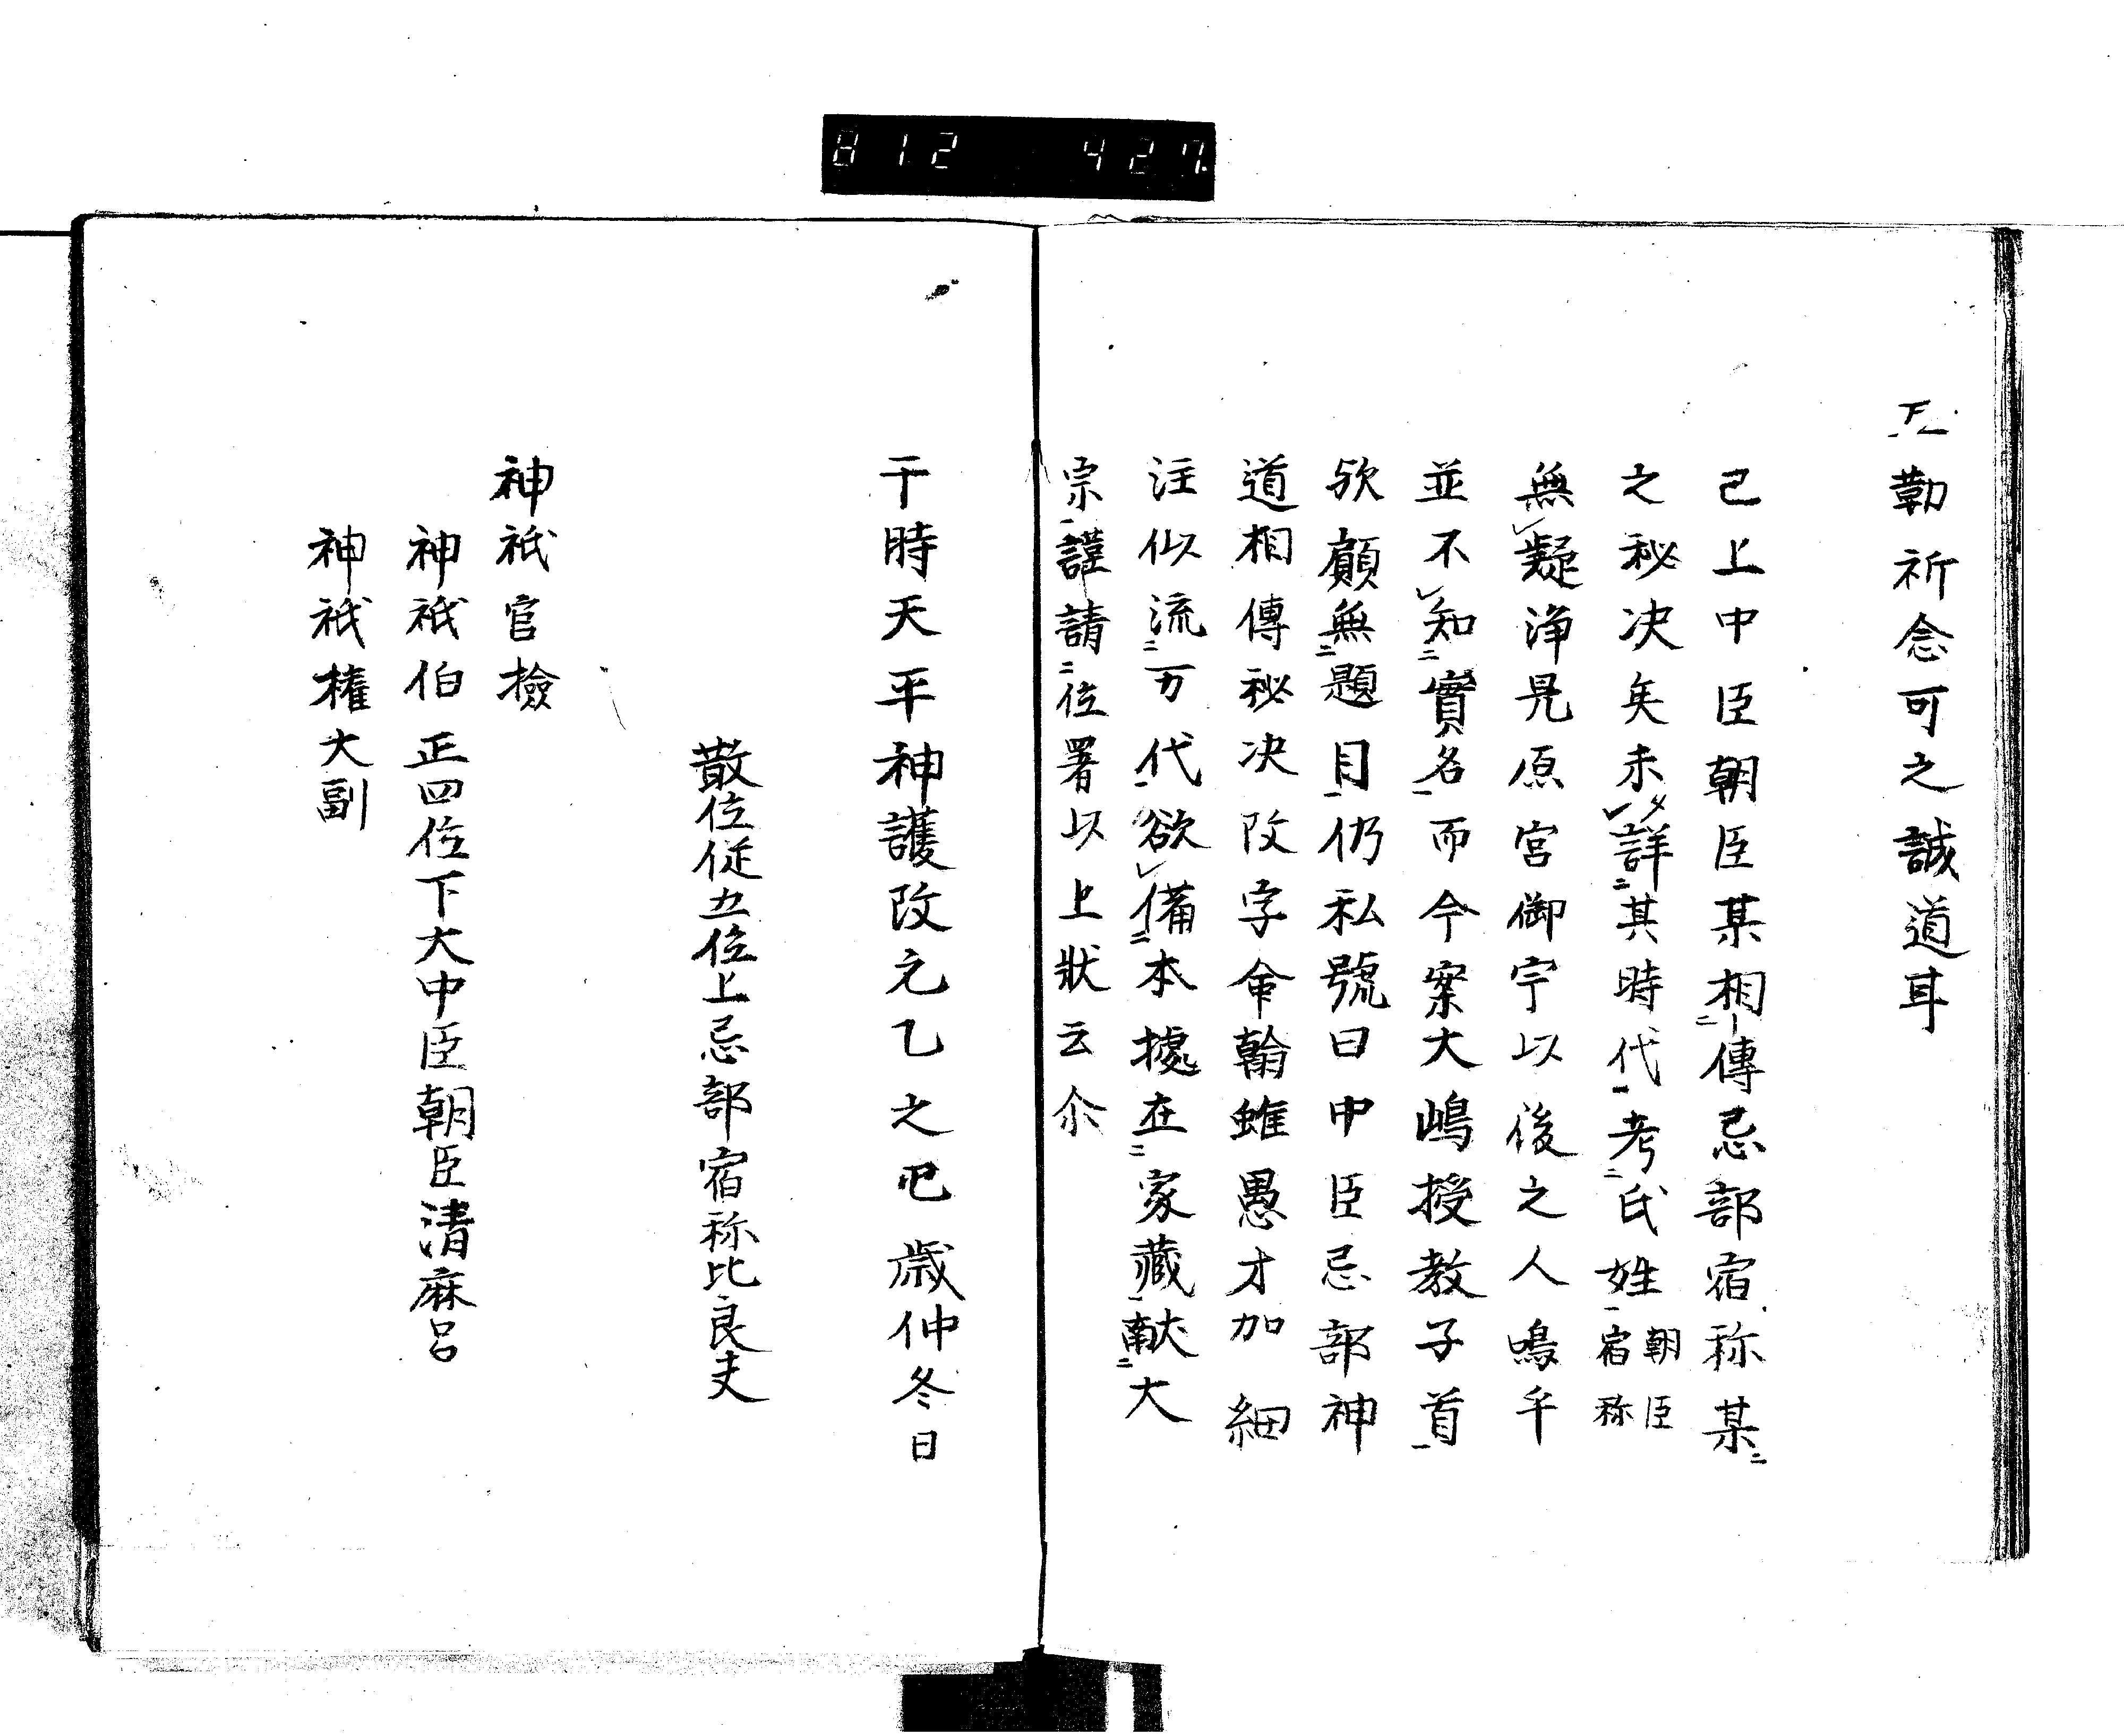 812 427
勤祈念可之誠道耳
已上中臣朝臣某相傳忌部宿祢某
之秘决矣未詳其時代考氏姓朝臣宿祢
無疑浄見原宮御宇以後之人嗚乎
並不知實名而今案大嶋授教子首
欤顧無題目仍私號曰中臣忌部神
道相傳秘决改字命翰雖愚才加細
注似流万代欲備本據在家藏献大
宗謹請位署以上狀云尒
于時天平神護改元乙之巳歳仲冬日
散位従五位上忌部宿祢比良夫
神祇官檢
神祇伯正四位下大中臣朝臣清麻呂
神祇權大副